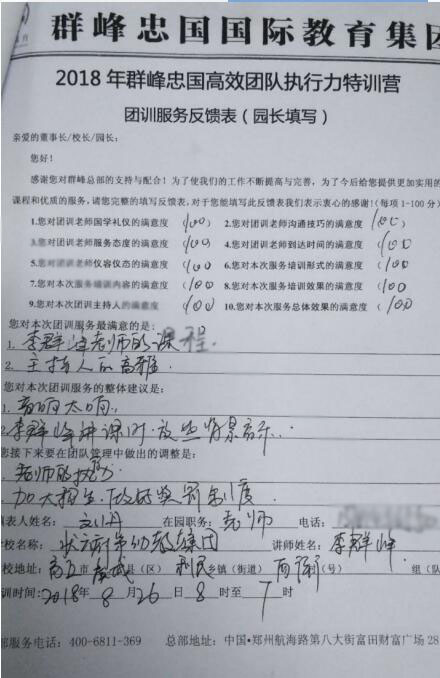 群峰忠国国际教育集团
2018年群峰忠国高效团队执行力特训营
团训服务反馈表（园长填写）
亲爱的董事长/校长/园长：
您好！
感谢您对群峰总部的支持与配合！为了使我们的工作不断提高与完善，为了今后给您提供更加实用的
课程和优质的服务，请您完整的填写反馈表，对于您能填写此反馈表我们表示衷心的感谢！（每项1-100分）
1.您对团训老师国学礼仪的满意度（100） 2.您对团训老师沟通技巧的满意度（100）
3.您对团训老师服务态度的满意度（100 4.您对团训老师到达时间的满意度（100
5.您对团训老师仪容仪态的满意度（100 6.您对本次服务培训形式的满意度（100
7.您对本次服务培训内容的满意度（100 8.您对本次服务培训效果的满意度（100
9.您对本次团训主持人的满意度（100 10.您对本次服务总体效果的满意度（100
您对本次团训服务最满意的是：
1.李群峰老师的课程
2.主持人的高雅.
您对本次团训服务的整体建议是：
1.音响太响.
李群峰讲课时放些背景音乐.
您接下来要在团队管理中做出的调整是：
老师的
加大招生.做好奖罚制度
填表人姓名： 在园职务：老师 电话：
学校名称： 幼教集团 讲师姓名：李群峰
学校地址： 市 县（区） 利民乡镇（街道） （号） 组（队
培训时间：2018年8月26日8时至7时
部服务电话：400-6811-369 总部地址：中国·郑州航海路第八大街富田财富广场28